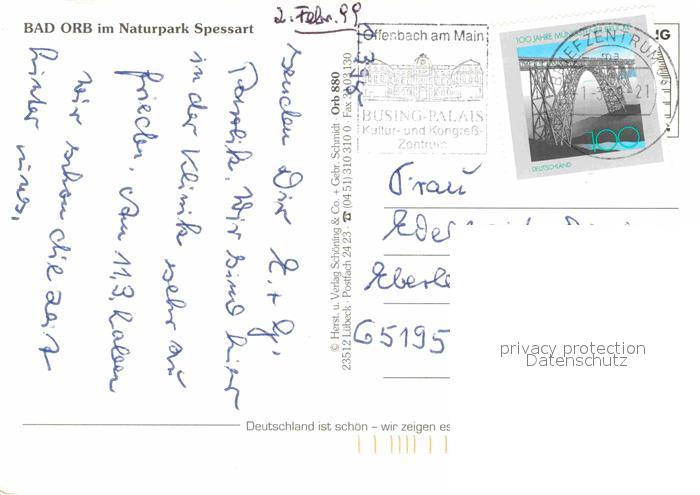 BAD ORB im Naturpark Spessart
2. Febr. 99
senden Dir E. + G.
Wir sind hier
in der Klinik sehr zu
frieden. Am 11.3. haben
wir schon die Zeit
hinter uns.
© Herst. u. Verlag Schöning & Co. + Gebr. Schmidt · Orb 880
23512 Lübeck · Postfach 24 23 · ☎ (04 51) 310 310 0 · Fax 31 03 130
Offenbach am Main
BÜSING-PALAIS
Kultur- und Kongreß-
Zentrum
100 JAHRE
100
DEUTSCHLAND
BRIEFZENTRUM
21
Frau
65195
privacy protection
Datenschutz
Deutschland ist schön – wir zeigen es